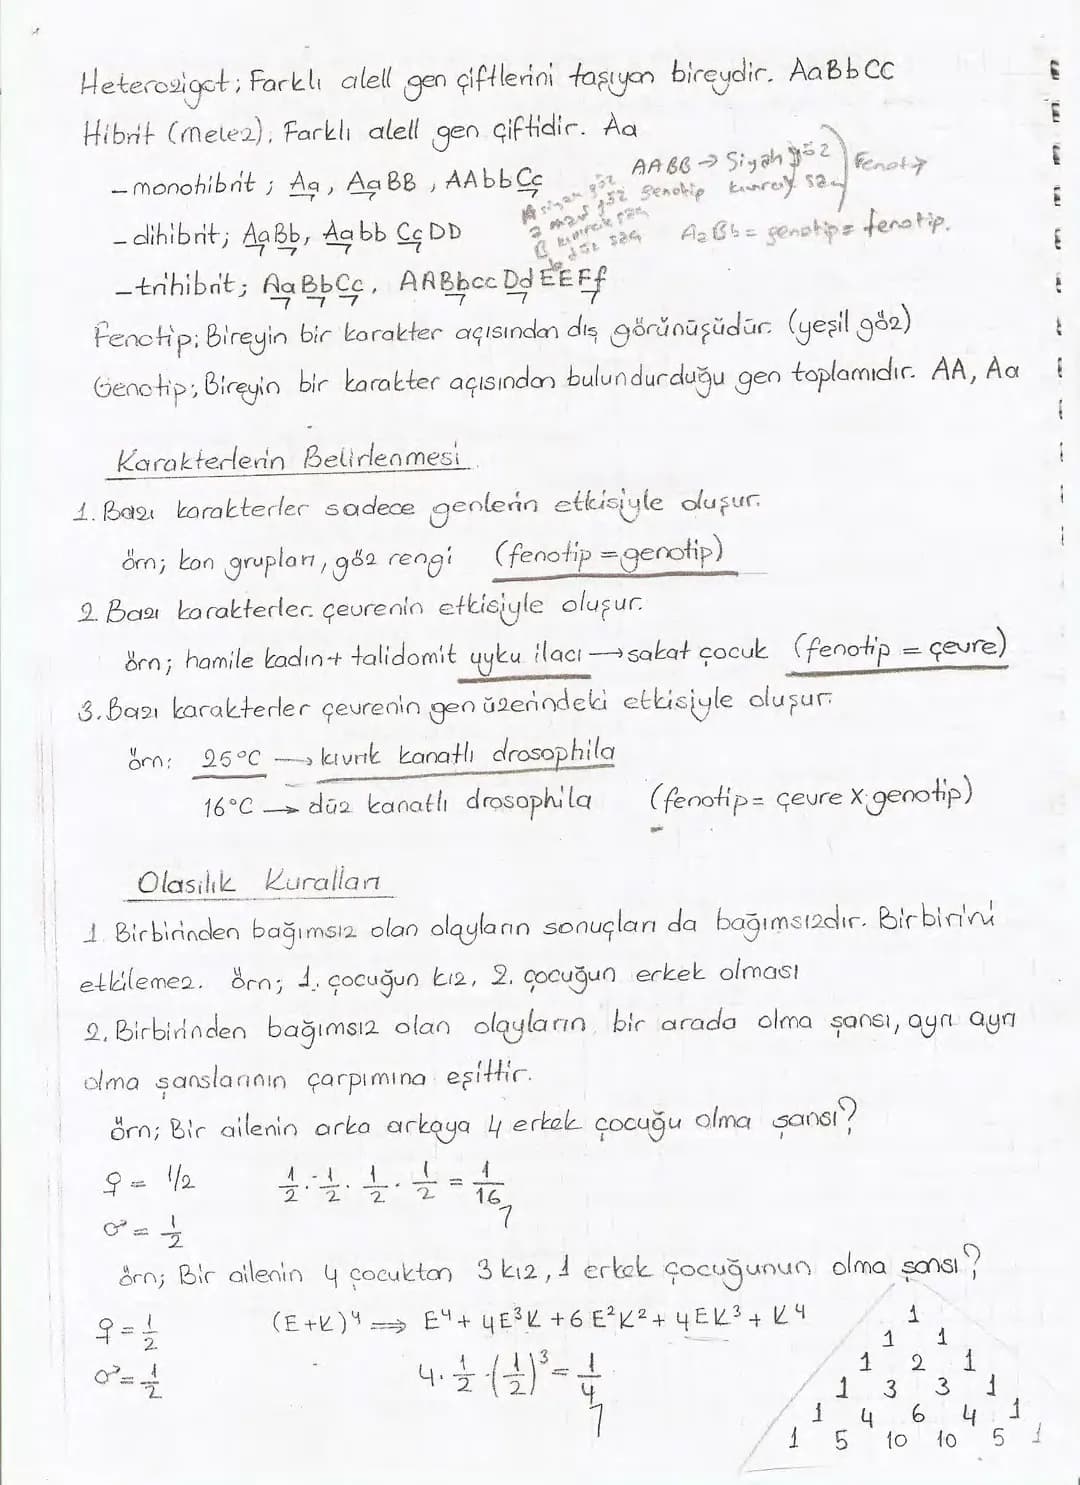 Heterozigot; Farklı alell gen çiftlerini taşıyan bireydir. AaBbCC
Hibrit (melez); Farklı alell gen çiftidir. Aa
- monohibrit; Aa, AaBB, AAbbCc
AABB → Siyah göz
genotip kıvırcık saç
Fenotip
A siyah göz
a mavi göz
B kıvırcık saç
b düz saç
- dihibrit; AaBb, AabbCcDD
AaBb = genotip = fenotip.
- trihibrit; AaBbCc, AABbccDdEEFf
Fenotip; Bireyin bir karakter açısından dış görünüşüdür. (yeşil göz)
Genotip; Bireyin bir karakter açısından bulundurduğu gen toplamıdır. AA, Aa
Karakterlerin Belirlenmesi
1. Bazı karakterler sadece genlerin etkisiyle oluşur.
örn; kan grupları, göz rengi (fenotip = genotip)
2. Bazı karakterler çevrenin etkisiyle oluşur.
örn; hamile kadın + talidomit uyku ilacı → sakat çocuk (fenotip = çevre)
3. Bazı karakterler çevrenin gen üzerindeki etkisiyle oluşur.
örn: 25°C → kıvrık kanatlı drosophila
16°C → düz kanatlı drosophila (fenotip = çevre x genotip)
Olasılık Kuralları
1. Birbirinden bağımsız olan olayların sonuçları da bağımsızdır. Birbirini
etkilemez. örn; 1. çocuğun kız, 2. çocuğun erkek olması
2. Birbirinden bağımsız olan olayların bir arada olma şansı, ayrı ayrı
olma şanslarının çarpımına eşittir.
örn; Bir ailenin arka arkaya 4 erkek çocuğu olma şansı?
♀ = 1/2 1/2 . 1/2 . 1/2 . 1/2 = 1/16
♂ = 1/2
örn; Bir ailenin 4 çocuktan 3 kız, 1 erkek çocuğunun olma şansı?
♀ = 1/2 (E+K)⁴ ⟹ E⁴ + 4E³K + 6E²K² + 4EK³ + K⁴
♂ = 1/2 4 . 1/2 . (1/2)³ = 1/4
1
1 1
1 2 1
1 3 3 1
1 4 6 4 1
1 5 10 10 5 1